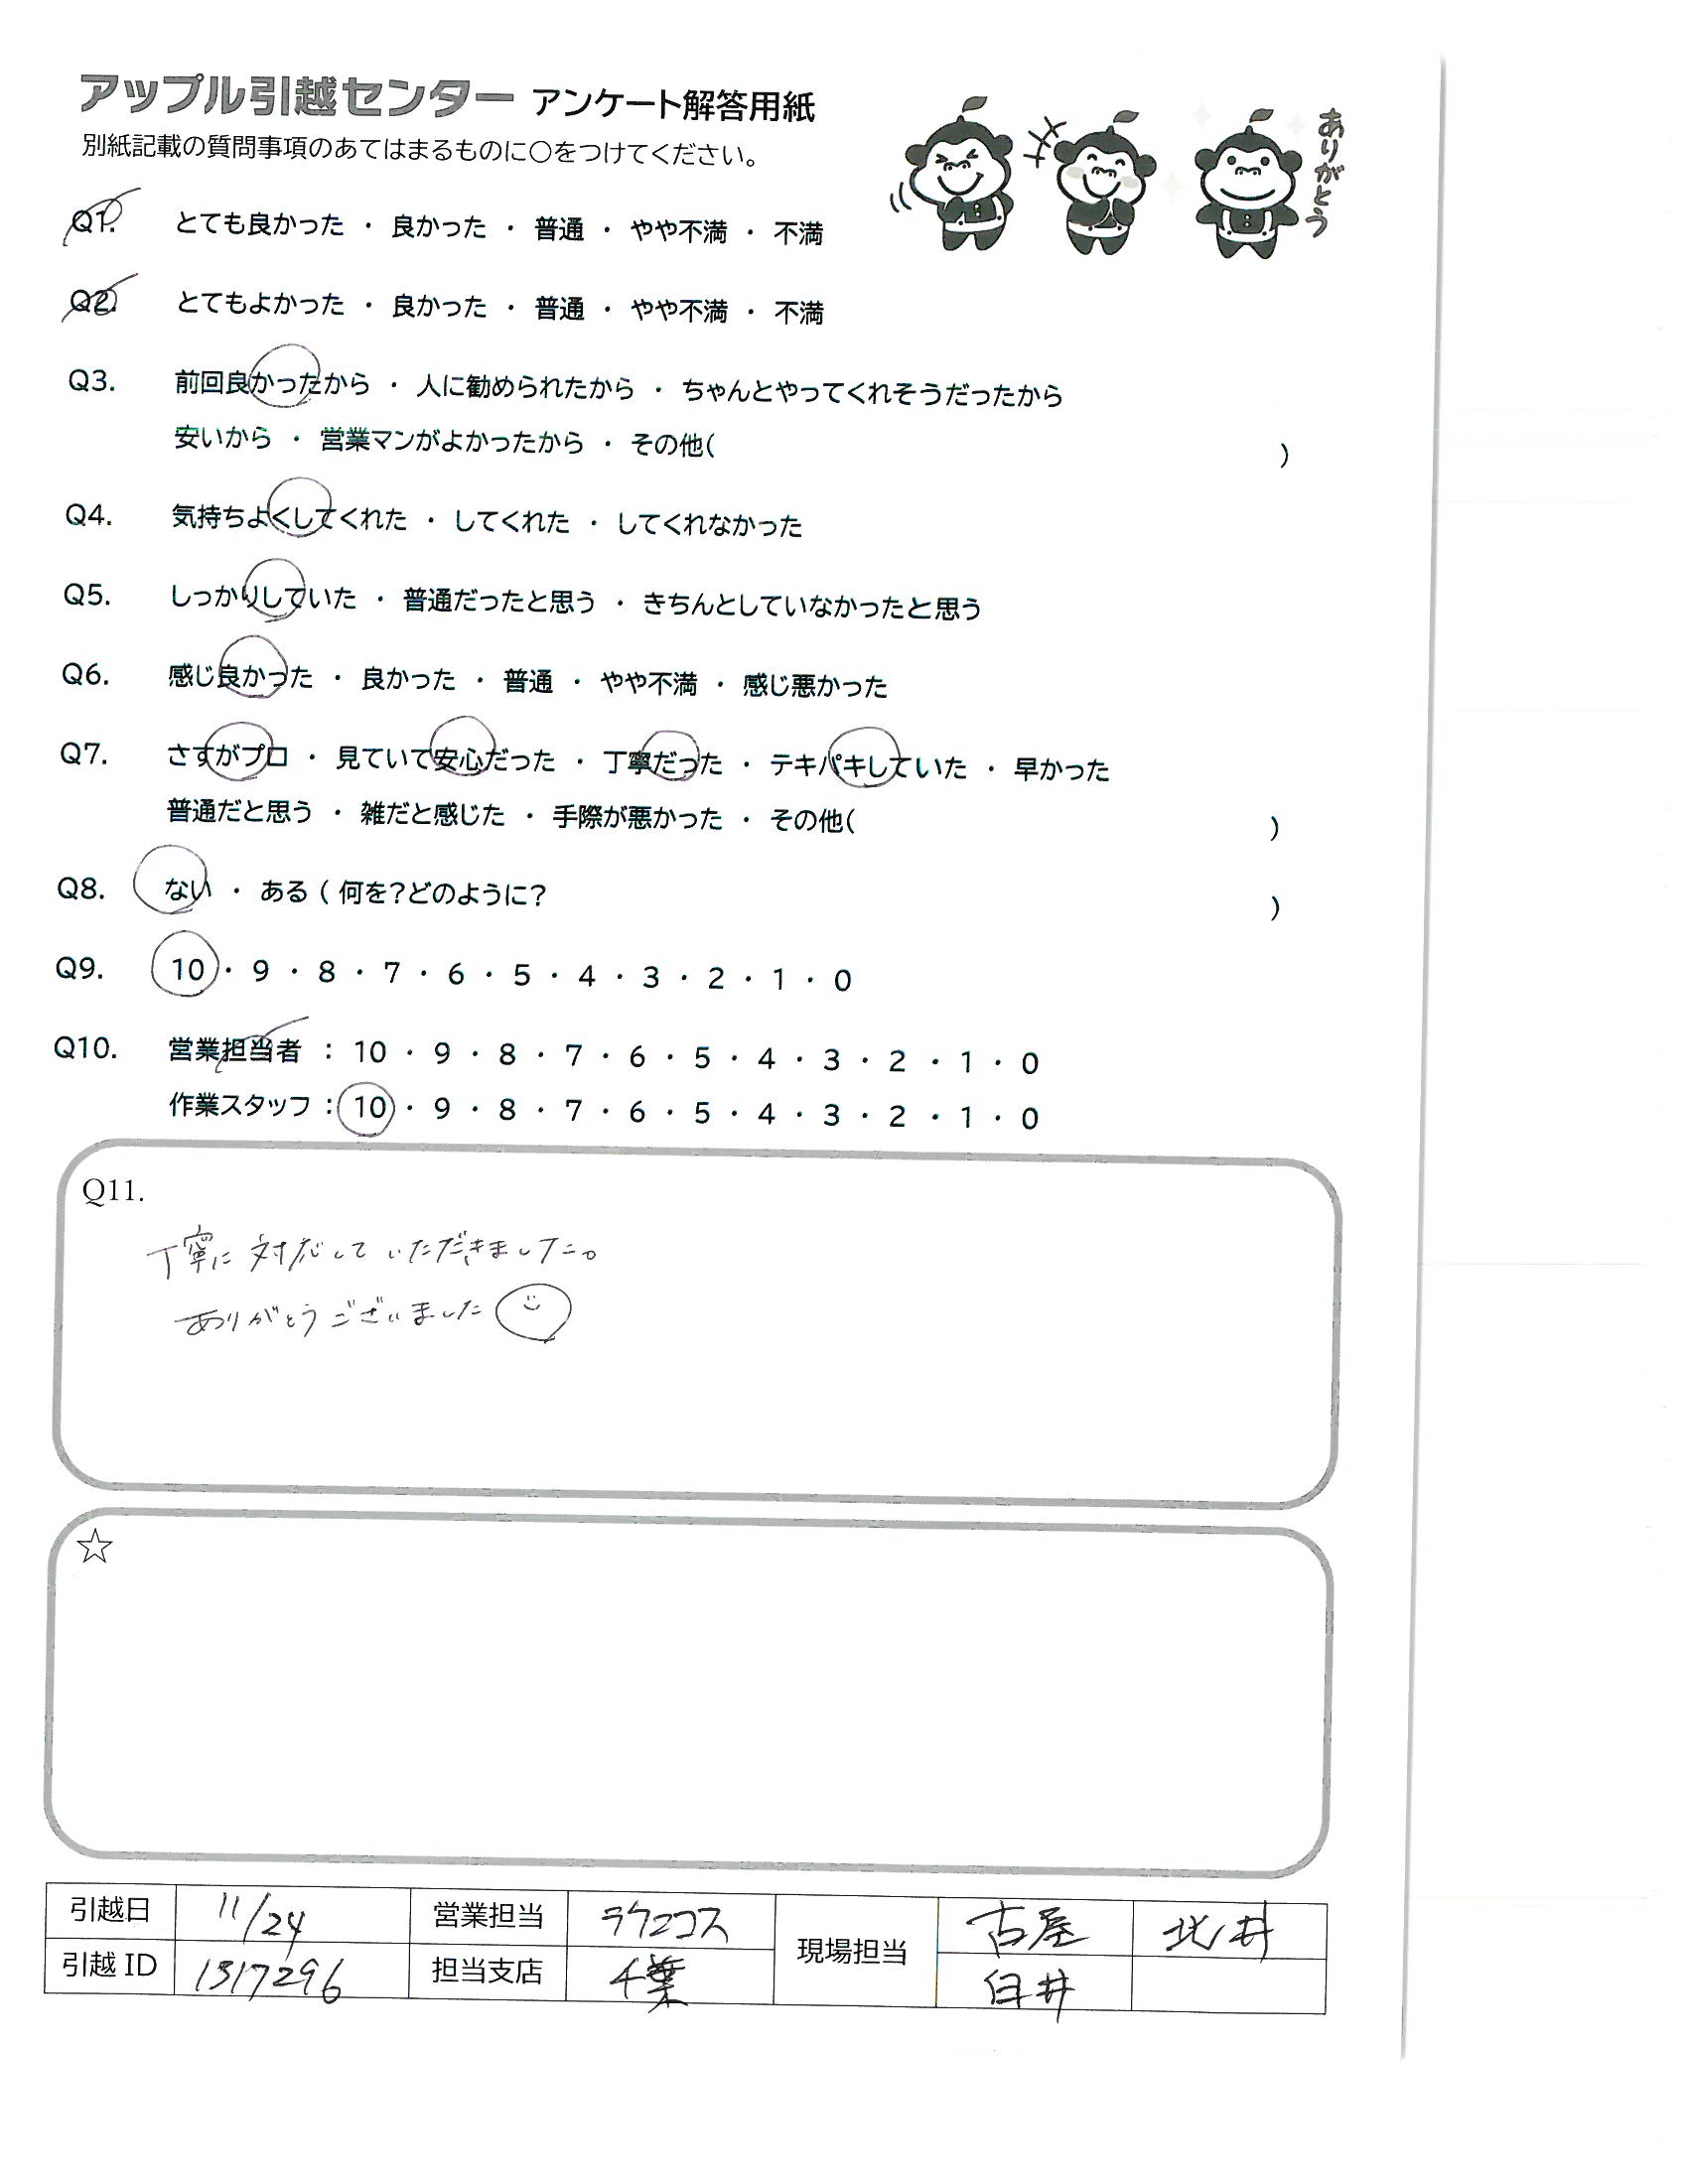 アップル引越センター アンケート解答用紙
別紙記載の質問事項のあてはまるものに○をつけてください。
ありがとう
Q1. とても良かった ・ 良かった ・ 普通 ・ やや不満 ・ 不満
Q2. とてもよかった ・ 良かった ・ 普通 ・ やや不満 ・ 不満
Q3. 前回良かったから ・ 人に勧められたから ・ ちゃんとやってくれそうだったから
安いから ・ 営業マンがよかったから ・ その他( )
Q4. 気持ちよくしてくれた ・ してくれた ・ してくれなかった
Q5. しっかりしていた ・ 普通だったと思う ・ きちんとしていなかったと思う
Q6. 感じ良かった ・ 良かった ・ 普通 ・ やや不満 ・ 感じ悪かった
Q7. さすがプロ ・ 見ていて安心だった ・ 丁寧だった ・ テキパキしていた ・ 早かった
普通だと思う ・ 雑だと感じた ・ 手際が悪かった ・ その他( )
Q8. ない ・ ある ( 何を?どのように? )
Q9. 10 ・ 9 ・ 8 ・ 7 ・ 6 ・ 5 ・ 4 ・ 3 ・ 2 ・ 1 ・ 0
Q10. 営業担当者 : 10 ・ 9 ・ 8 ・ 7 ・ 6 ・ 5 ・ 4 ・ 3 ・ 2 ・ 1 ・ 0
作業スタッフ : 10 ・ 9 ・ 8 ・ 7 ・ 6 ・ 5 ・ 4 ・ 3 ・ 2 ・ 1 ・ 0
Q11.
丁寧に対応していただきました。
ありがとうございました
☆
引越日 11/24 営業担当 ラクニコス 現場担当 古屋 北井
引越 ID 1317296 担当支店 千葉 臼井